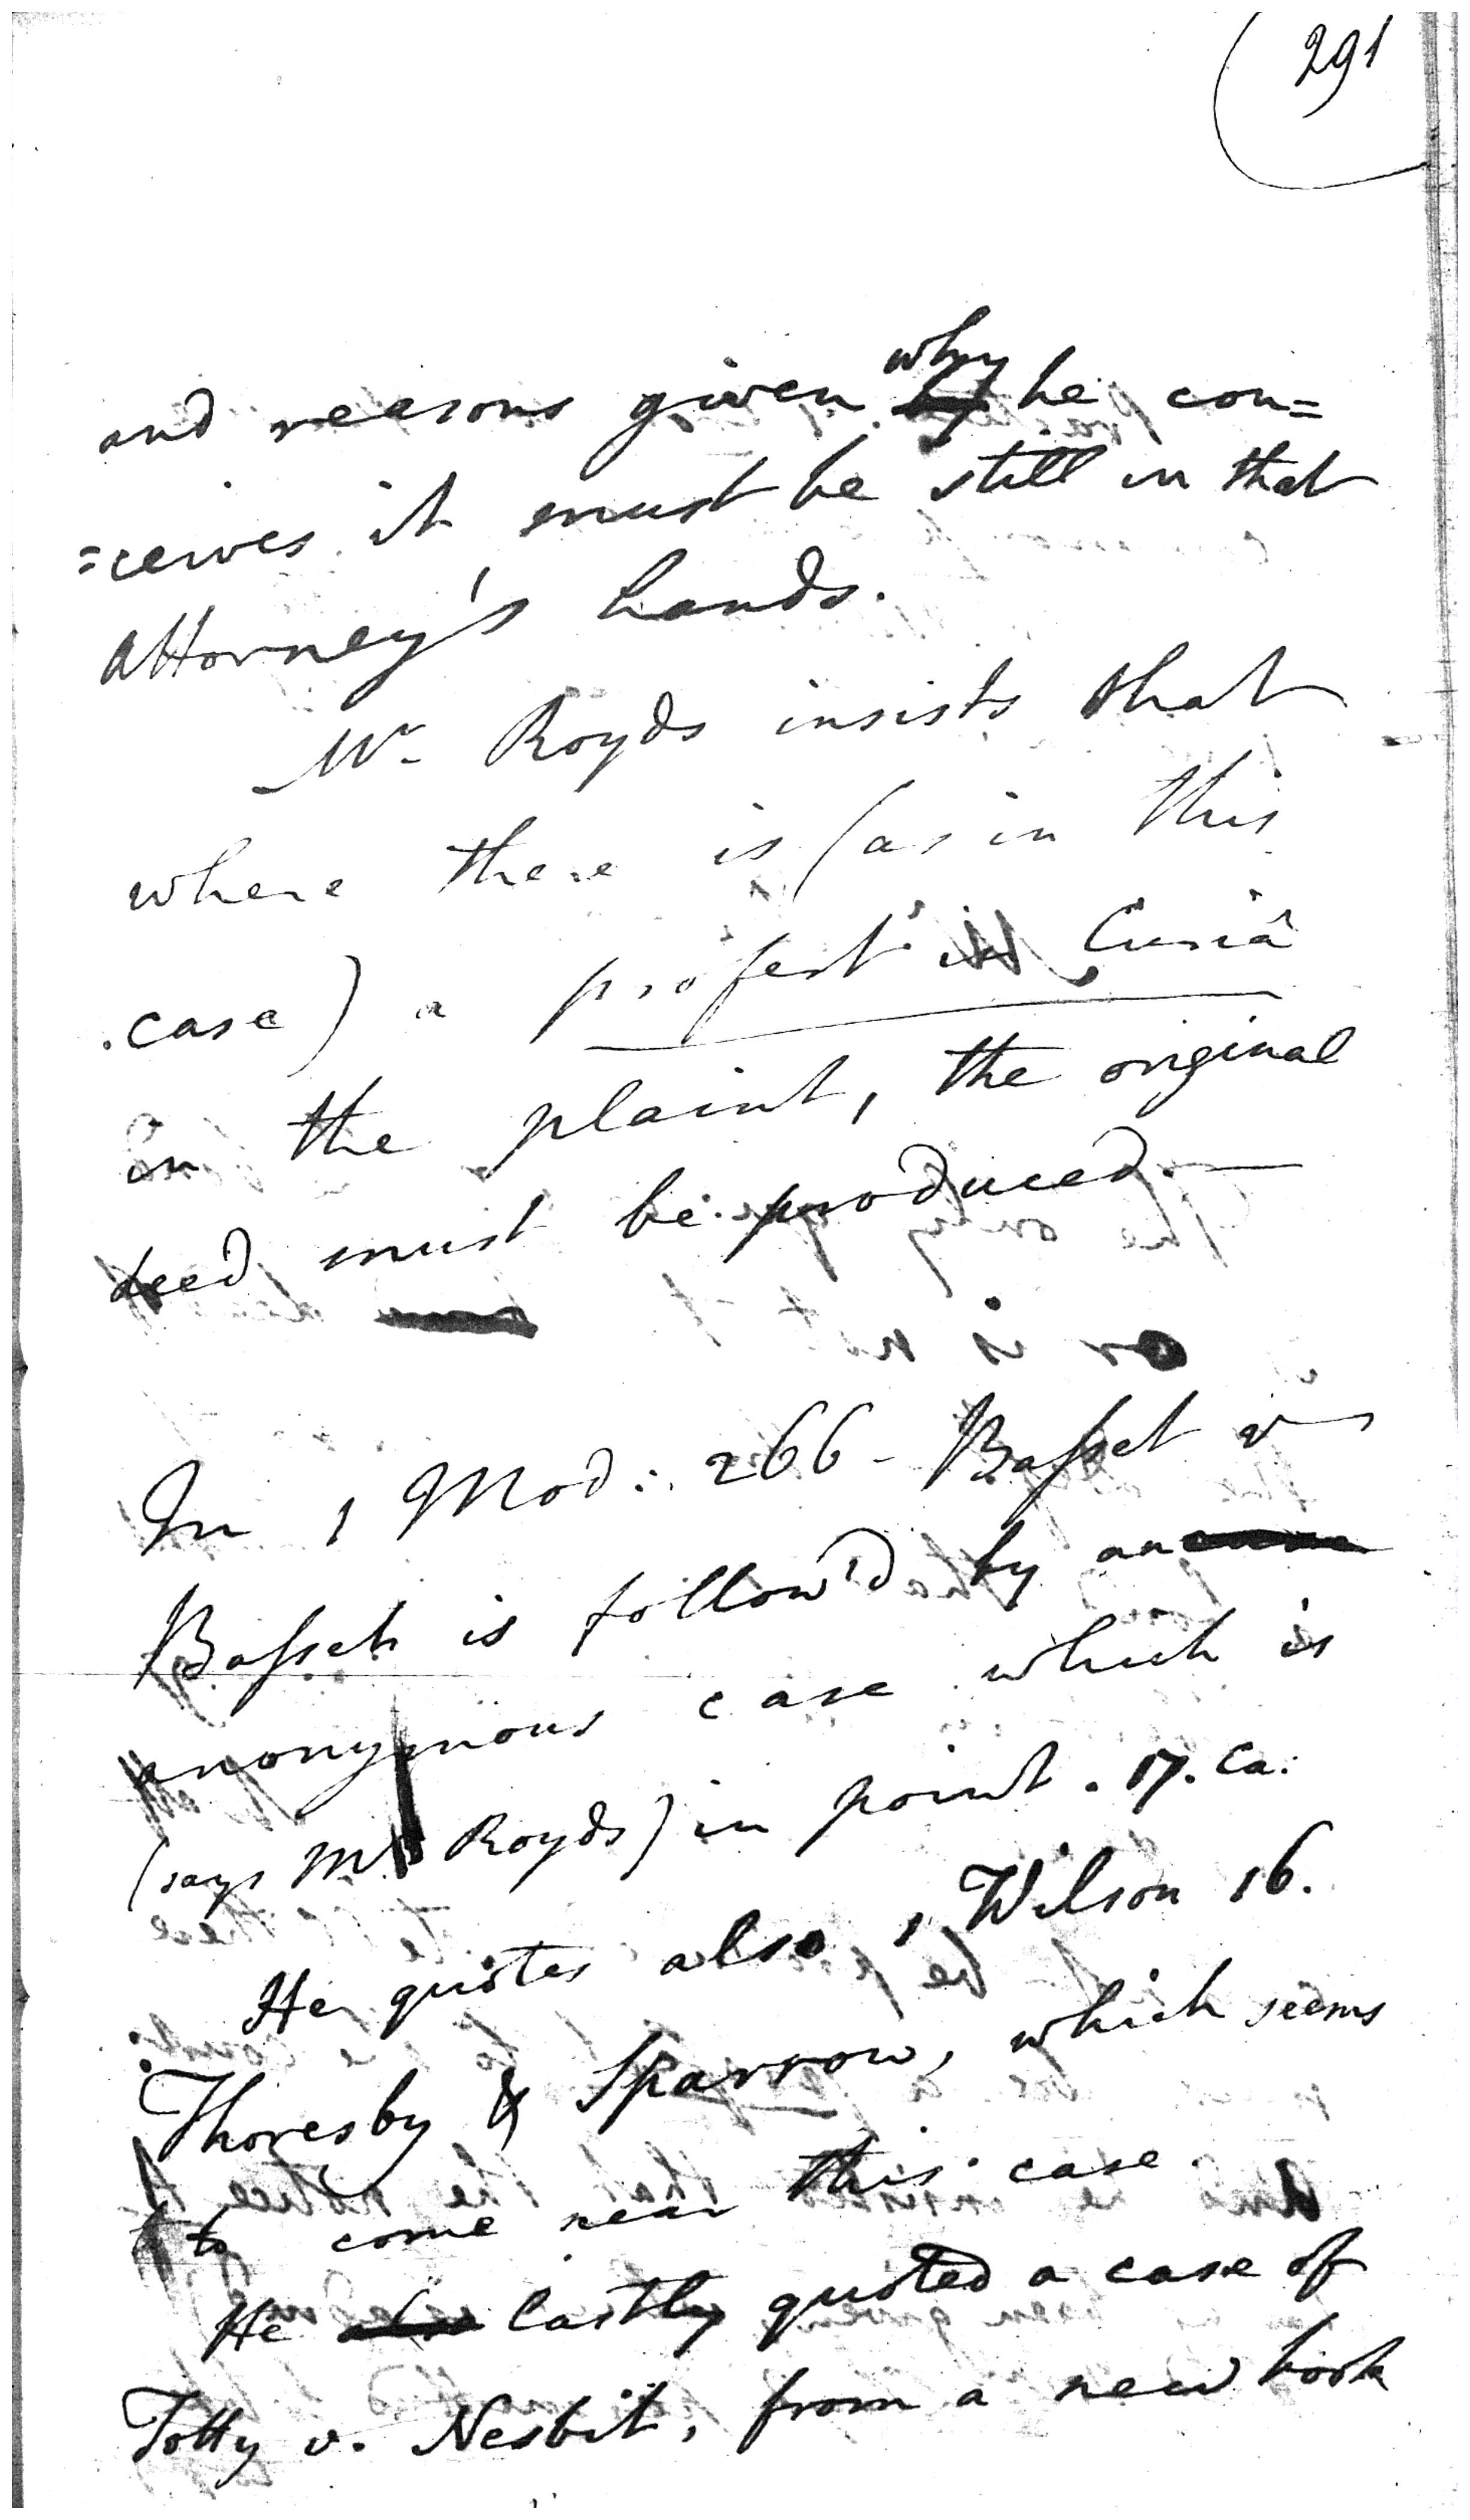 291
and reasons given why he con=
=ceives it must be still in that
attorney's hands.
Mr Royds insists that
where there is (as in this
case) a profert in Curiâ
in the plaint, the original
deed must be produced.—
In 1 Mod: 266 - Basset v
Basset is follow'd by an
anonymous case which is
(says Mr Royds) in point. 17. Ca:
He quotes also 1 Wilson 16.
Thoresby & Sparrow, which seems
to come near this case.
He lastly quoted a case of
Totty v. Nesbit, from a new book